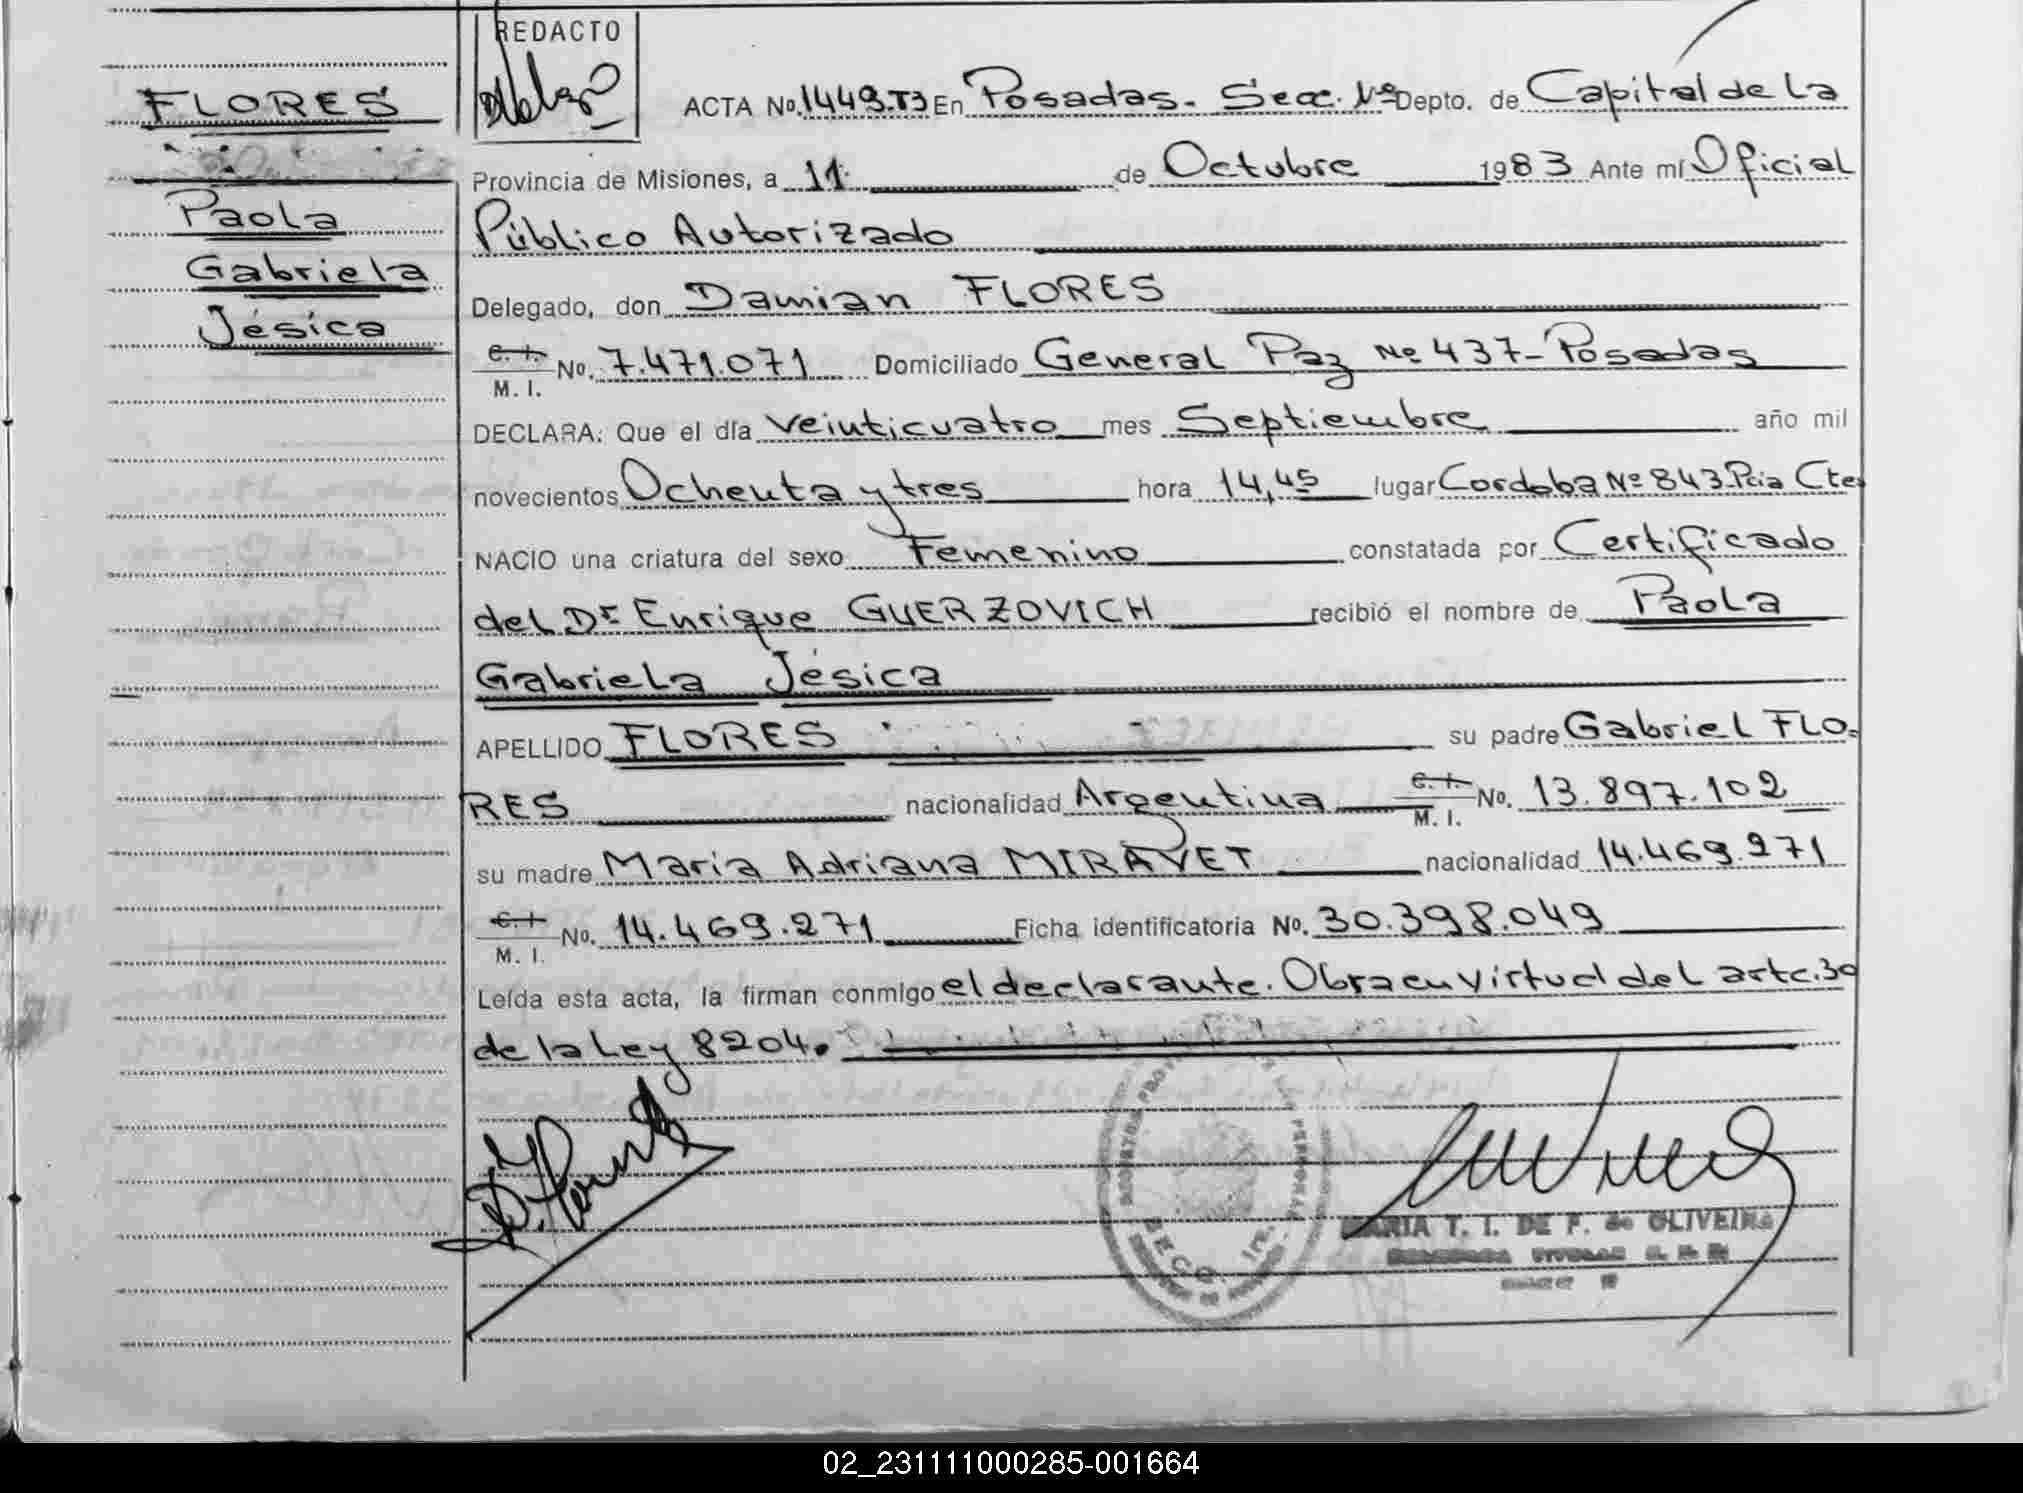 REDACTO
FLORES
Paola
Gabriela
Jésica
ACTA No. 1449.T3 En Posadas. Secc. 1ª Depto. de Capital de La
Provincia de Misiones, a 11 de Octubre 1983 Ante mí Oficial
Público Autorizado
Delegado, don Damian FLORES
C. I. M. I. No. 7.471.071 Domiciliado General Paz Nº 437-Posadas
DECLARA: Que el día veinticuatro mes Septiembre año mil
novecientos Ochenta y tres hora 14,45 lugar Cordoba Nº 843 Pcia Ctes
NACIO una criatura del sexo Femenino constatada por Certificado
del Dr Enrique GUERZOVICH recibió el nombre de Paola
Gabriela Jésica
APELLIDO FLORES su padre Gabriel FLO-
RES nacionalidad Argentina C. I. M. I. No. 13.897.102
su madre Maria Adriana MIRAVET nacionalidad 14.469.271
C. I. M. I. No. 14.469.271 Ficha identificatoria No. 30.398.049
Leída esta acta, la firman conmigo el declarante. Obra en virtud del artc. 30
de la Ley 8204.
MARIA T. I. DE F. de OLIVEIRA
02_231111000285-001664